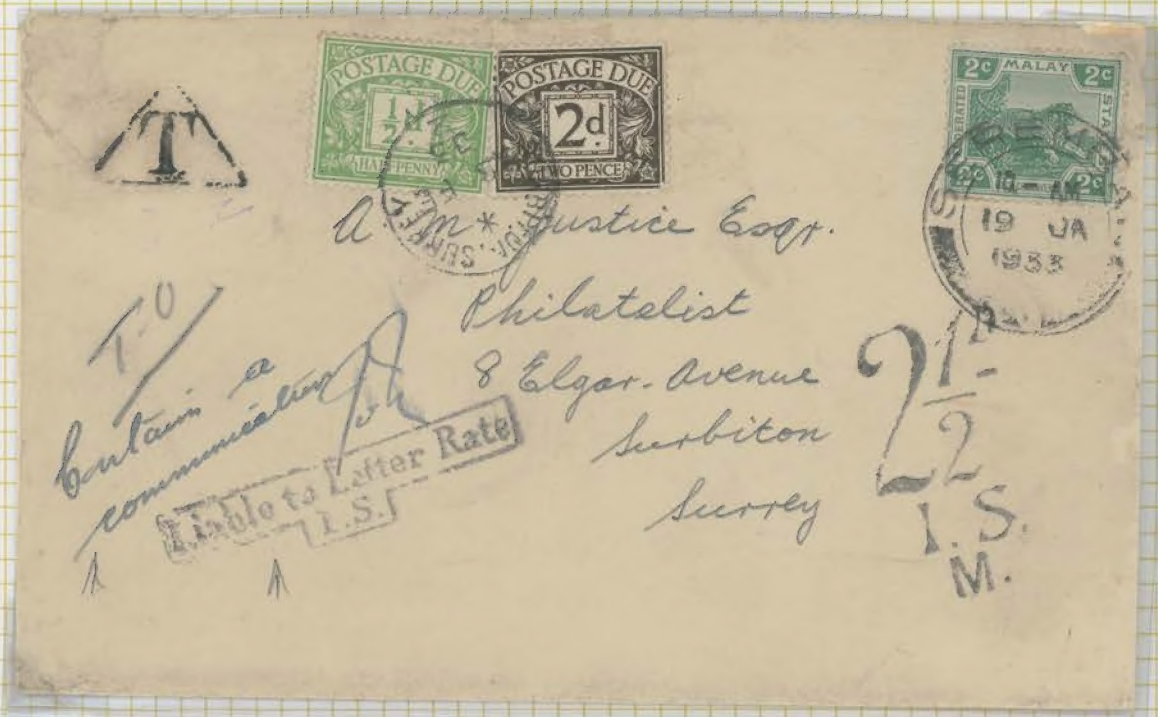 POSTAGE DUE
1/2d.
HALFPENNY
POSTAGE DUE
2d.
TWO PENCE
2c MALAY 2c
2c 2c
T
SURBITON. SURREY
SEREMBAN
10 - AM
19 JA
1933
A M Justice Esqr.
Philatelist
8 Elgar. Avenue
Surbiton
Surrey
T-O
Contains a
communication
Liable to Letter Rate
I.S.
2 1/2D
I.S.
M.